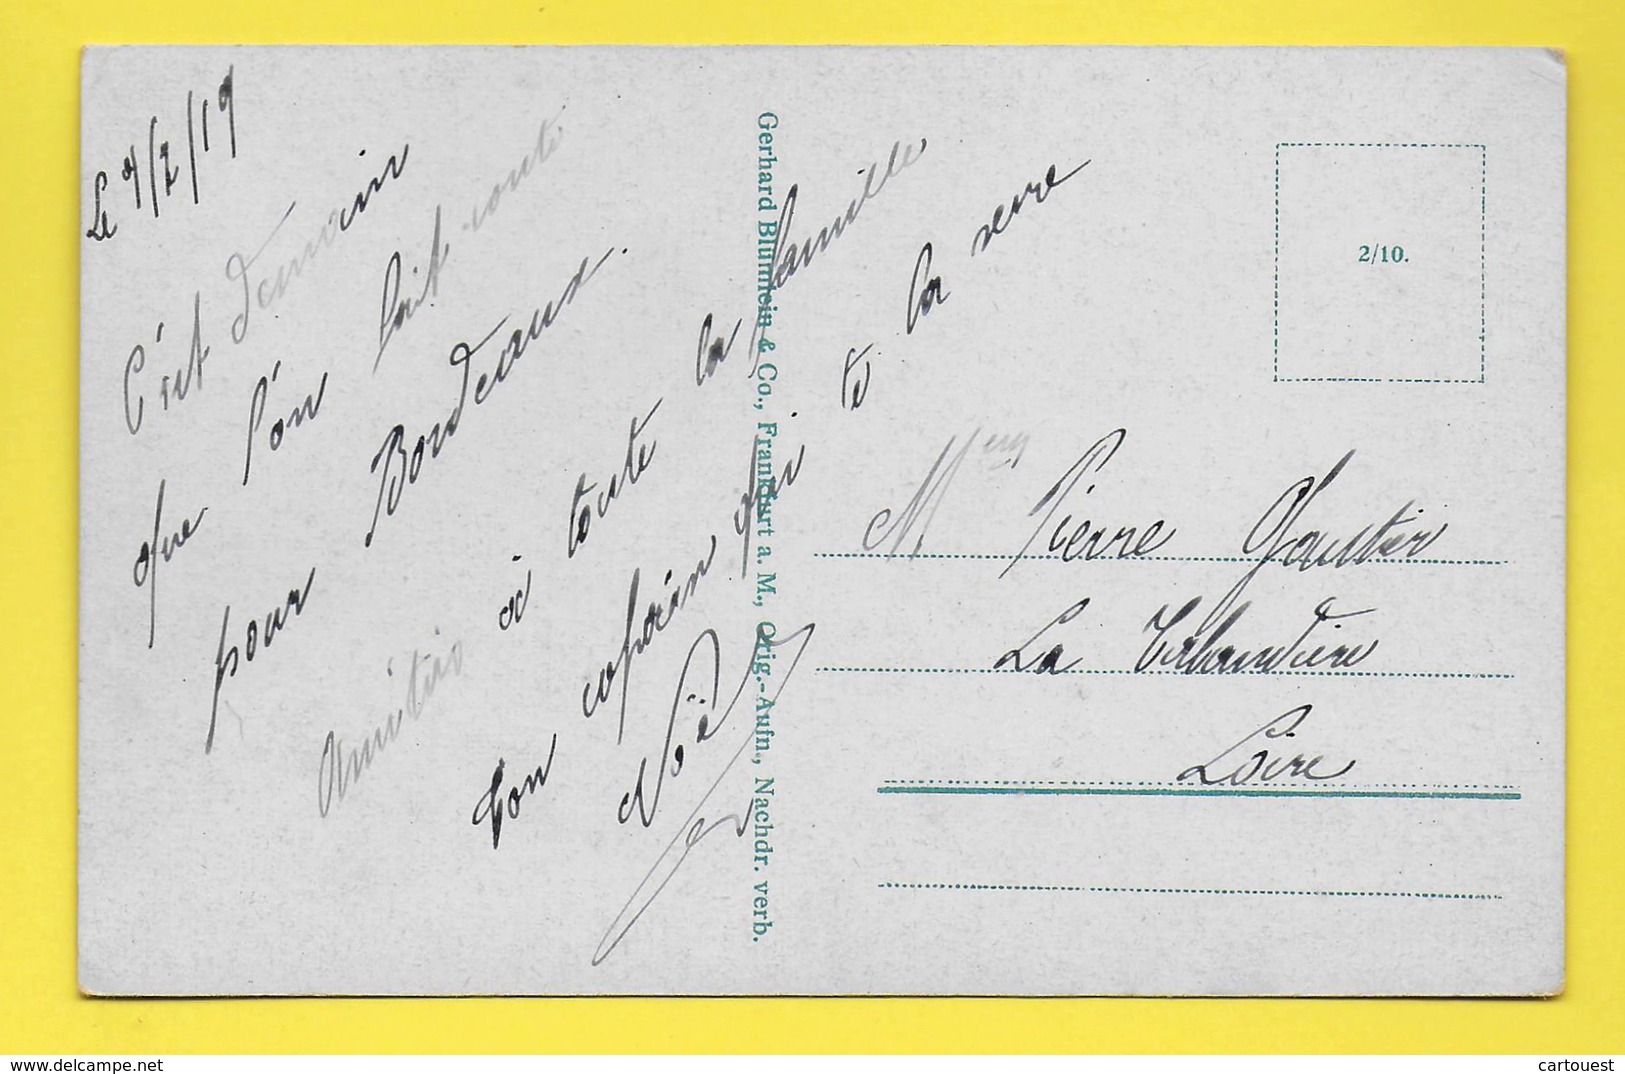 Le 4/2/19
C'est demain
que l'on fait route
pour Bordeaux.
Amitiés à toute la famille
Ton copain qui te la serre
Noël
Gerhard Blümlein & Co., Frankfurt a. M., Orig.-Aufn., Nachdr. verb.
2/10.
Pierre Goutier
La Talaudière
Loire
delcampe.net
cartouest